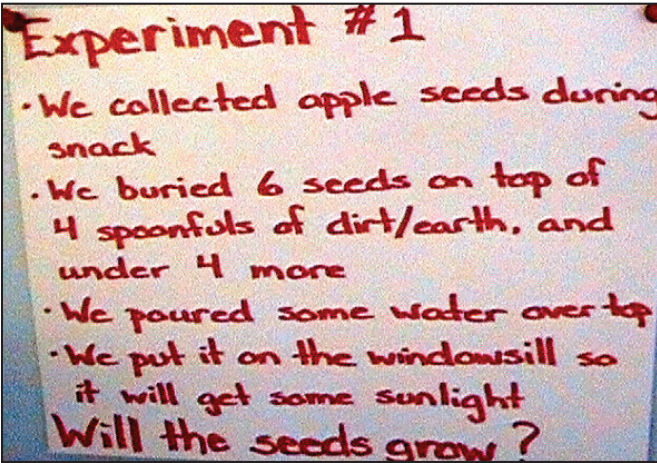 Experiment #1
· We collected apple seeds during
snack
· We buried 6 seeds on top of
4 spoonfuls of dirt/earth, and
under 4 more
· We poured some water over top
· We put it on the windowsill so
it will get some sunlight
Will the seeds grow?